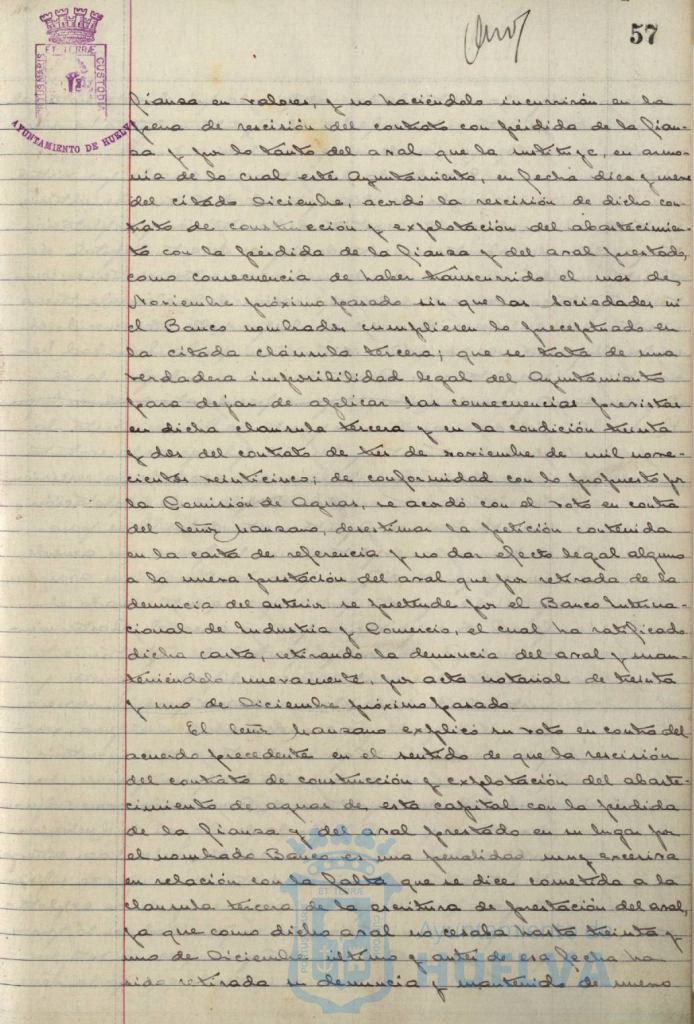 57
PORTUS MARIS ET TERRÆ CUSTODIA
AYUNTAMIENTO DE HUELVA
fianza en valores, y no haciéndolo incurrirán en la
pena de rescisión del contrato con pérdida de la fian-
za y por lo tanto del aval que la sustituye, en armo-
nia de lo cual este Ayuntamiento, en fecha diez y nueve
del citado Diciembre, acordó la rescisión de dicho con-
trato de construcción y explotación del abastecimien-
to con la pérdida de la fianza y del aval prestado,
como consecuencia de haber transcurrido el mes de
Noviembre próximo pasado sin que las Sociedades ni
el Banco nombrados cumplieren lo preceptuado en
la citada cláusula tercera; que se trata de una
verdadera imposibilidad legal del Ayuntamiento
para dejar de aplicar las consecuencias previstas
en dicha clausula tercera y en la condición treinta
y dos del contrato de tres de noviembre de mil nove-
cientos veinticinco; de conformidad con lo propuesto por
la Comisión de Aguas, se acordó con el voto en contra
del Señor Manzano, desestimar la petición contenida
en la carta de referencia y no dar efecto legal alguno
a la nueva prestación del aval que por retirada de la
denuncia del anterior se pretende por el Banco Interna-
cional de Industria y Comercio, el cual ha ratificado
dicha carta, retirando la denuncia del aval y man-
teniéndolo nuevamente, por acta notarial de treinta
y uno de Diciembre próximo pasado.
El Señor Manzano explicó su voto en contra del
acuerdo precedente en el sentido de que la rescisión
del contrato de construcción y explotación del abaste-
cimiento de aguas de esta capital con la pérdida
de la fianza y del aval prestado en su lugar por
el nombrado Banco es una penalidad muy excesiva
en relación con la falta que se dice cometida a la
clausula tercera de la escritura de prestación del aval,
ya que como dicho aval no cesaba hasta treinta y
uno de Diciembre último y antes de esa fecha ha
sido retirada su denuncia y mantenido de nuevo
Ayuntamiento de
HUELVA